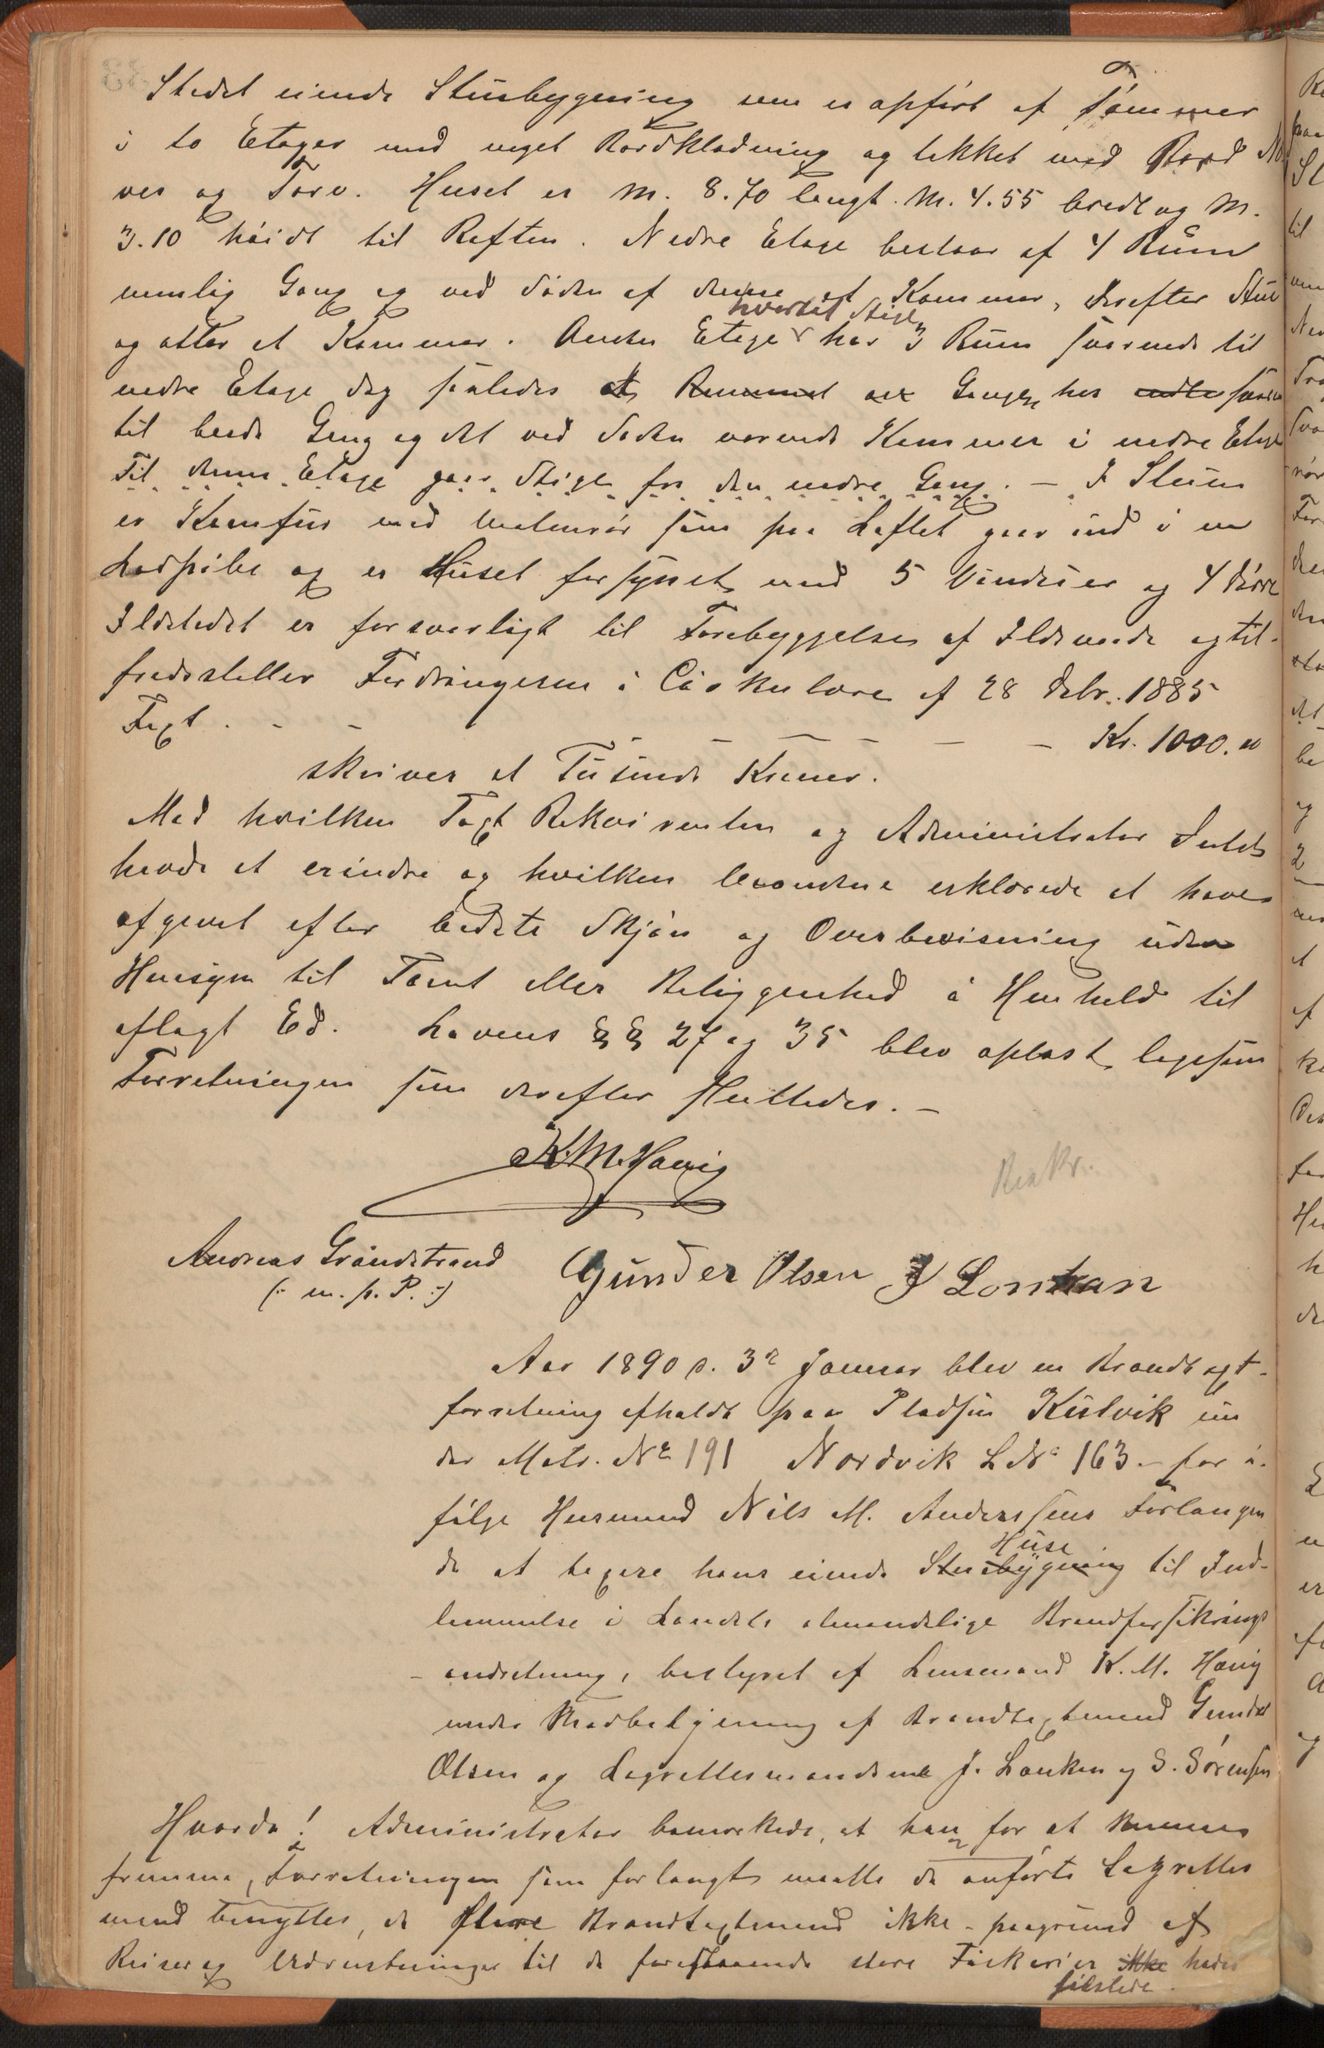 Stedet eiende Stuebygning som er opført af Tømmer
i to Etager med noget Bordklædning og tekket med Bord Næ
ver og Torv. Huset er M. 8.70 langt. M. 4.55 bredt og M.
3.10 høidt til Raften. Nedre Etage bestaar af 4 Rum
nemlig Gang og ved Siden af denne et Kammer, derefter Stue
og atter et Kammer. Anden Etage hvortil Stige har 3 Rum svarende til
nedre Etage dog saaledes at Rummet over Gangen har endto svaren
til baade Gang og det ved Siden værende Kammer i nedre Etage
Til denne Etage gaar Stige fra den nedre Gang. — I Stuen
er Komfur med Malmrør som paa Loftet gaar ind i en
Lodpibe og er Huset forsynet med 5 Vinduer og 4 Dørre
Ildstedet er forsvarligt til Forebyggelse af Ildsvaade og til-
fredsstiller Fordringerne i Cirkulære af 28 Debr. 1885
Taxt. - - - - - - - - Kr. 1000.00
skriver et Tusinde Kroner.
Med hvilken Taxt Rekvirenten og Administrator Intet
havde at erindre og hvilken Mændene erklærede at have
afgivet efter bedste Skjøn og Overbevisning uden
Hensyn til Tomt eller Beliggenhed i Henhold til
aflagt Ed. Lovens §§ 27 og 35 blev oplæst ligesom
Forretningen som derefter sluttedes. —
K. M. Havig
Rekv.
Andreas Grandstrand Gunder Olsen J Lonkan
(: m. p. P. :)
Aar 1890 d. 3die Januar blev en Brandtaxt-
forretning afholdt paa Pladsen Kulvik un
der Matr. No 191 Nordvik L No 163 – for i-
følge Husmand Nils M. Anderssens Forlangen
de at taxere hans eiende Stuebygning Huse til Ind-
lemmelse i Landets almindelige Brandforsikrings
- indretning, bestyret af Lensmand K. M. Havig
under Medbetjening af Brandtaxtmand Gunder
Olsen og Lagrettesmændene J. Lanken og S. Sørensen
Hvorda! Administrator bemærkede, at han for at kunne
fremme Forretningen som forlangt maatte de anførte Lagrettes
mænd benyttes, da flere Brandtaxtmænd ikke – paagrund af
Reiser og Udrustninger til de forestaaende store Fiskerier ikke havdes
tilstede.